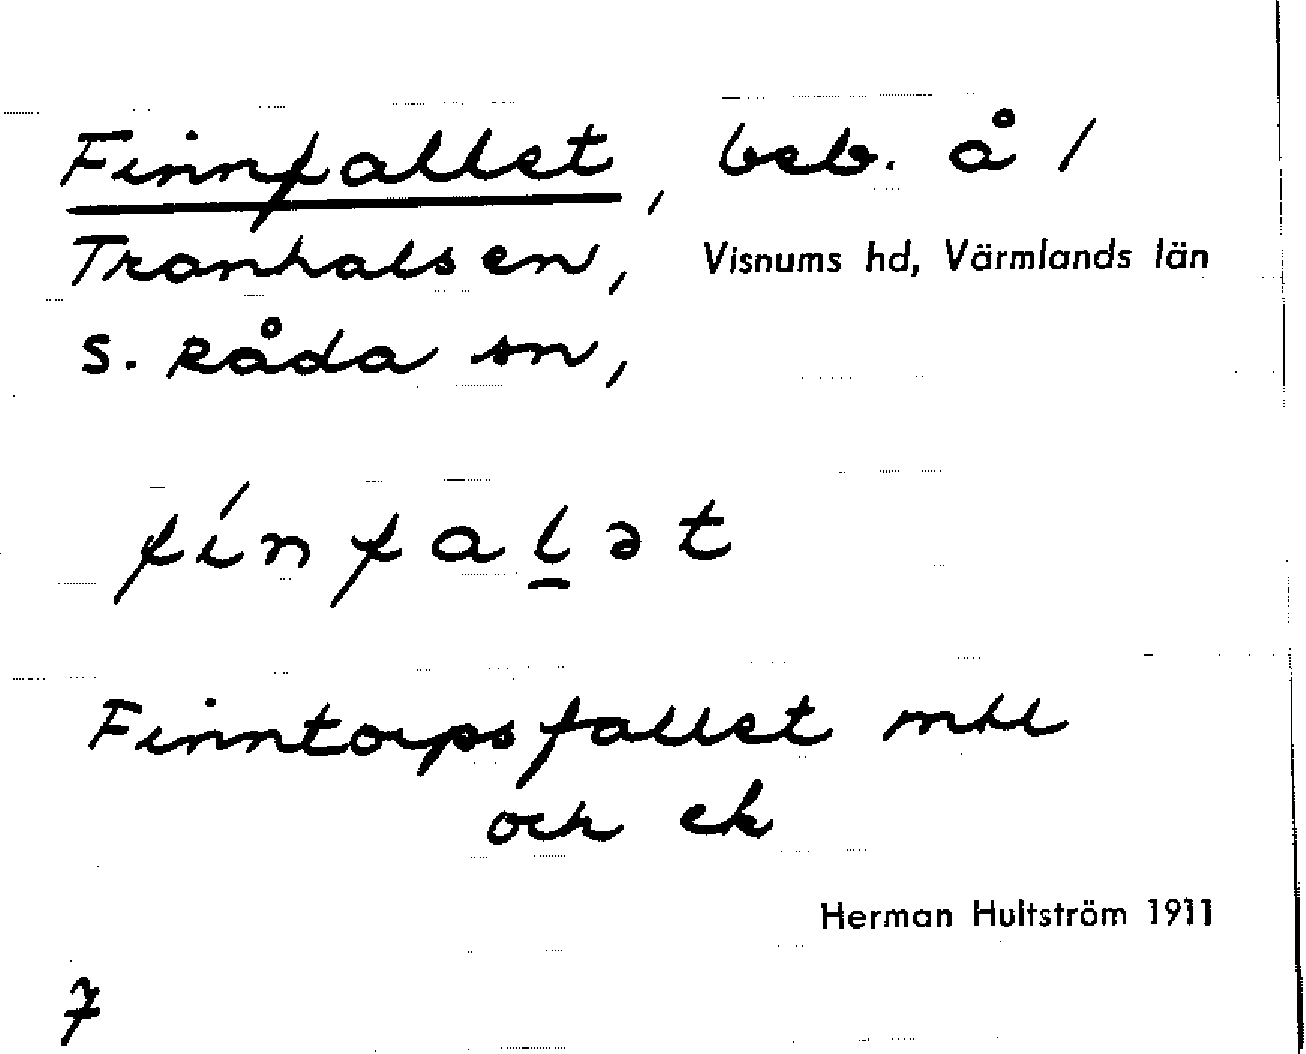 Finnfallet, beb. å /
Tranhalsen, Visnums hd, Värmlands län
S. Råda sn,
fínfalət
Finntorpsfallet mtl
och ek
Herman Hultström 1911
7